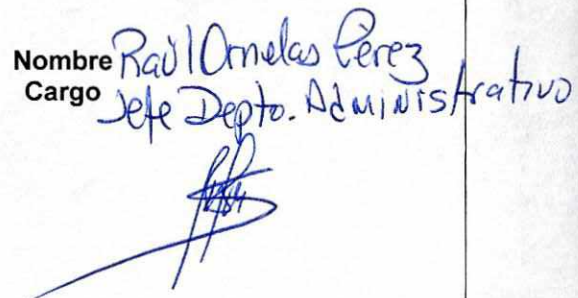 Nombre Raúl Ornelas Pérez
Cargo Jefe Depto. Administrativo